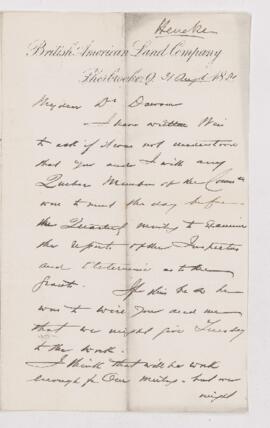 Heneker
British American Land Company
Sherbrooke, Q. 31 Augt 18
My dear Dr Dawson
I have written Wir
to ask if it was not understood
that you and I with any
Quebec Member of the Council
was to meet the day before
the Quarterly meeting to examine
the reports of the Inspectors
and determine as to the
grants. If this be so he
was to wire you and me
that we might give Tuesday
to the work.
I think that will be work
enough for one meeting, but we
might